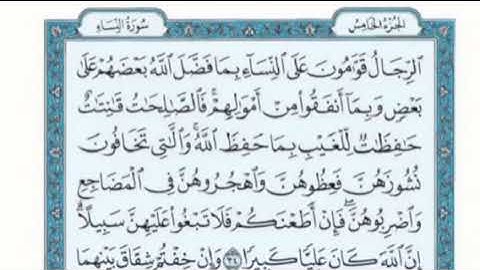 الجزء الخامس
سورة النساء
ٱلرِّجَالُ قَوَّٰمُونَ عَلَى ٱلنِّسَآءِ بِمَا فَضَّلَ ٱللَّهُ بَعْضَهُمْ عَلَىٰ
بَعْضٍ وَبِمَآ أَنفَقُوا۟ مِنْ أَمْوَٰلِهِمْ ۚ فَٱلصَّـٰلِحَـٰتُ قَـٰنِتَـٰتٌ
حَـٰفِظَـٰتٌ لِّلْغَيْبِ بِمَا حَفِظَ ٱللَّهُ ۚ وَٱلَّـٰتِى تَخَافُونَ
نُشُوزَهُنَّ فَعِظُوهُنَّ وَٱهْجُرُوهُنَّ فِى ٱلْمَضَاجِعِ
وَٱضْرِبُوهُنَّ ۖ فَإِنْ أَطَعْنَكُمْ فَلَا تَبْغُوا۟ عَلَيْهِنَّ سَبِيلًا ۗ
إِنَّ ٱللَّهَ كَانَ عَلِيًّا كَبِيرًا ٣٤ وَإِنْ خِفْتُمْ شِقَاقَ بَيْنِهِمَا